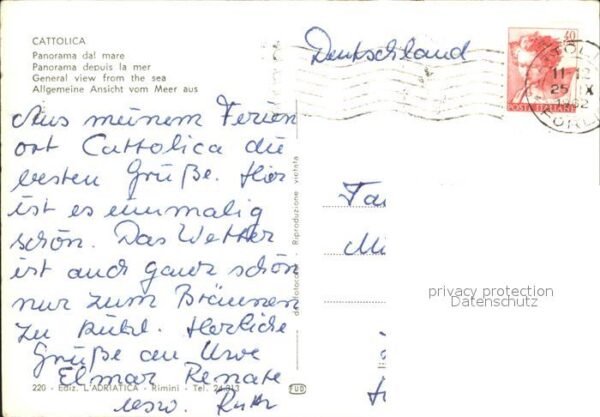 CATTOLICA
Panorama dal mare
Panorama depuis la mer
General view from the sea
Allgemeine Ansicht vom Meer aus
Deutschland
40
POSTE ITALIANE
11
25 IX
FORLI
Aus meinem Ferien
ort Cattolica die
besten Grüße. Hier
ist es einmalig
schön. Das Wetter
ist auch ganz schön
nur zum Bräunen
zu kühl. Herzliche
Grüße an Uwe
Elmar Renate
usw. Ruth
Riproduzione vietata
Fa
Mi
privacy protection
Datenschutz
220 - Ediz. L'ADRIATICA - Rimini - Tel. 24.313